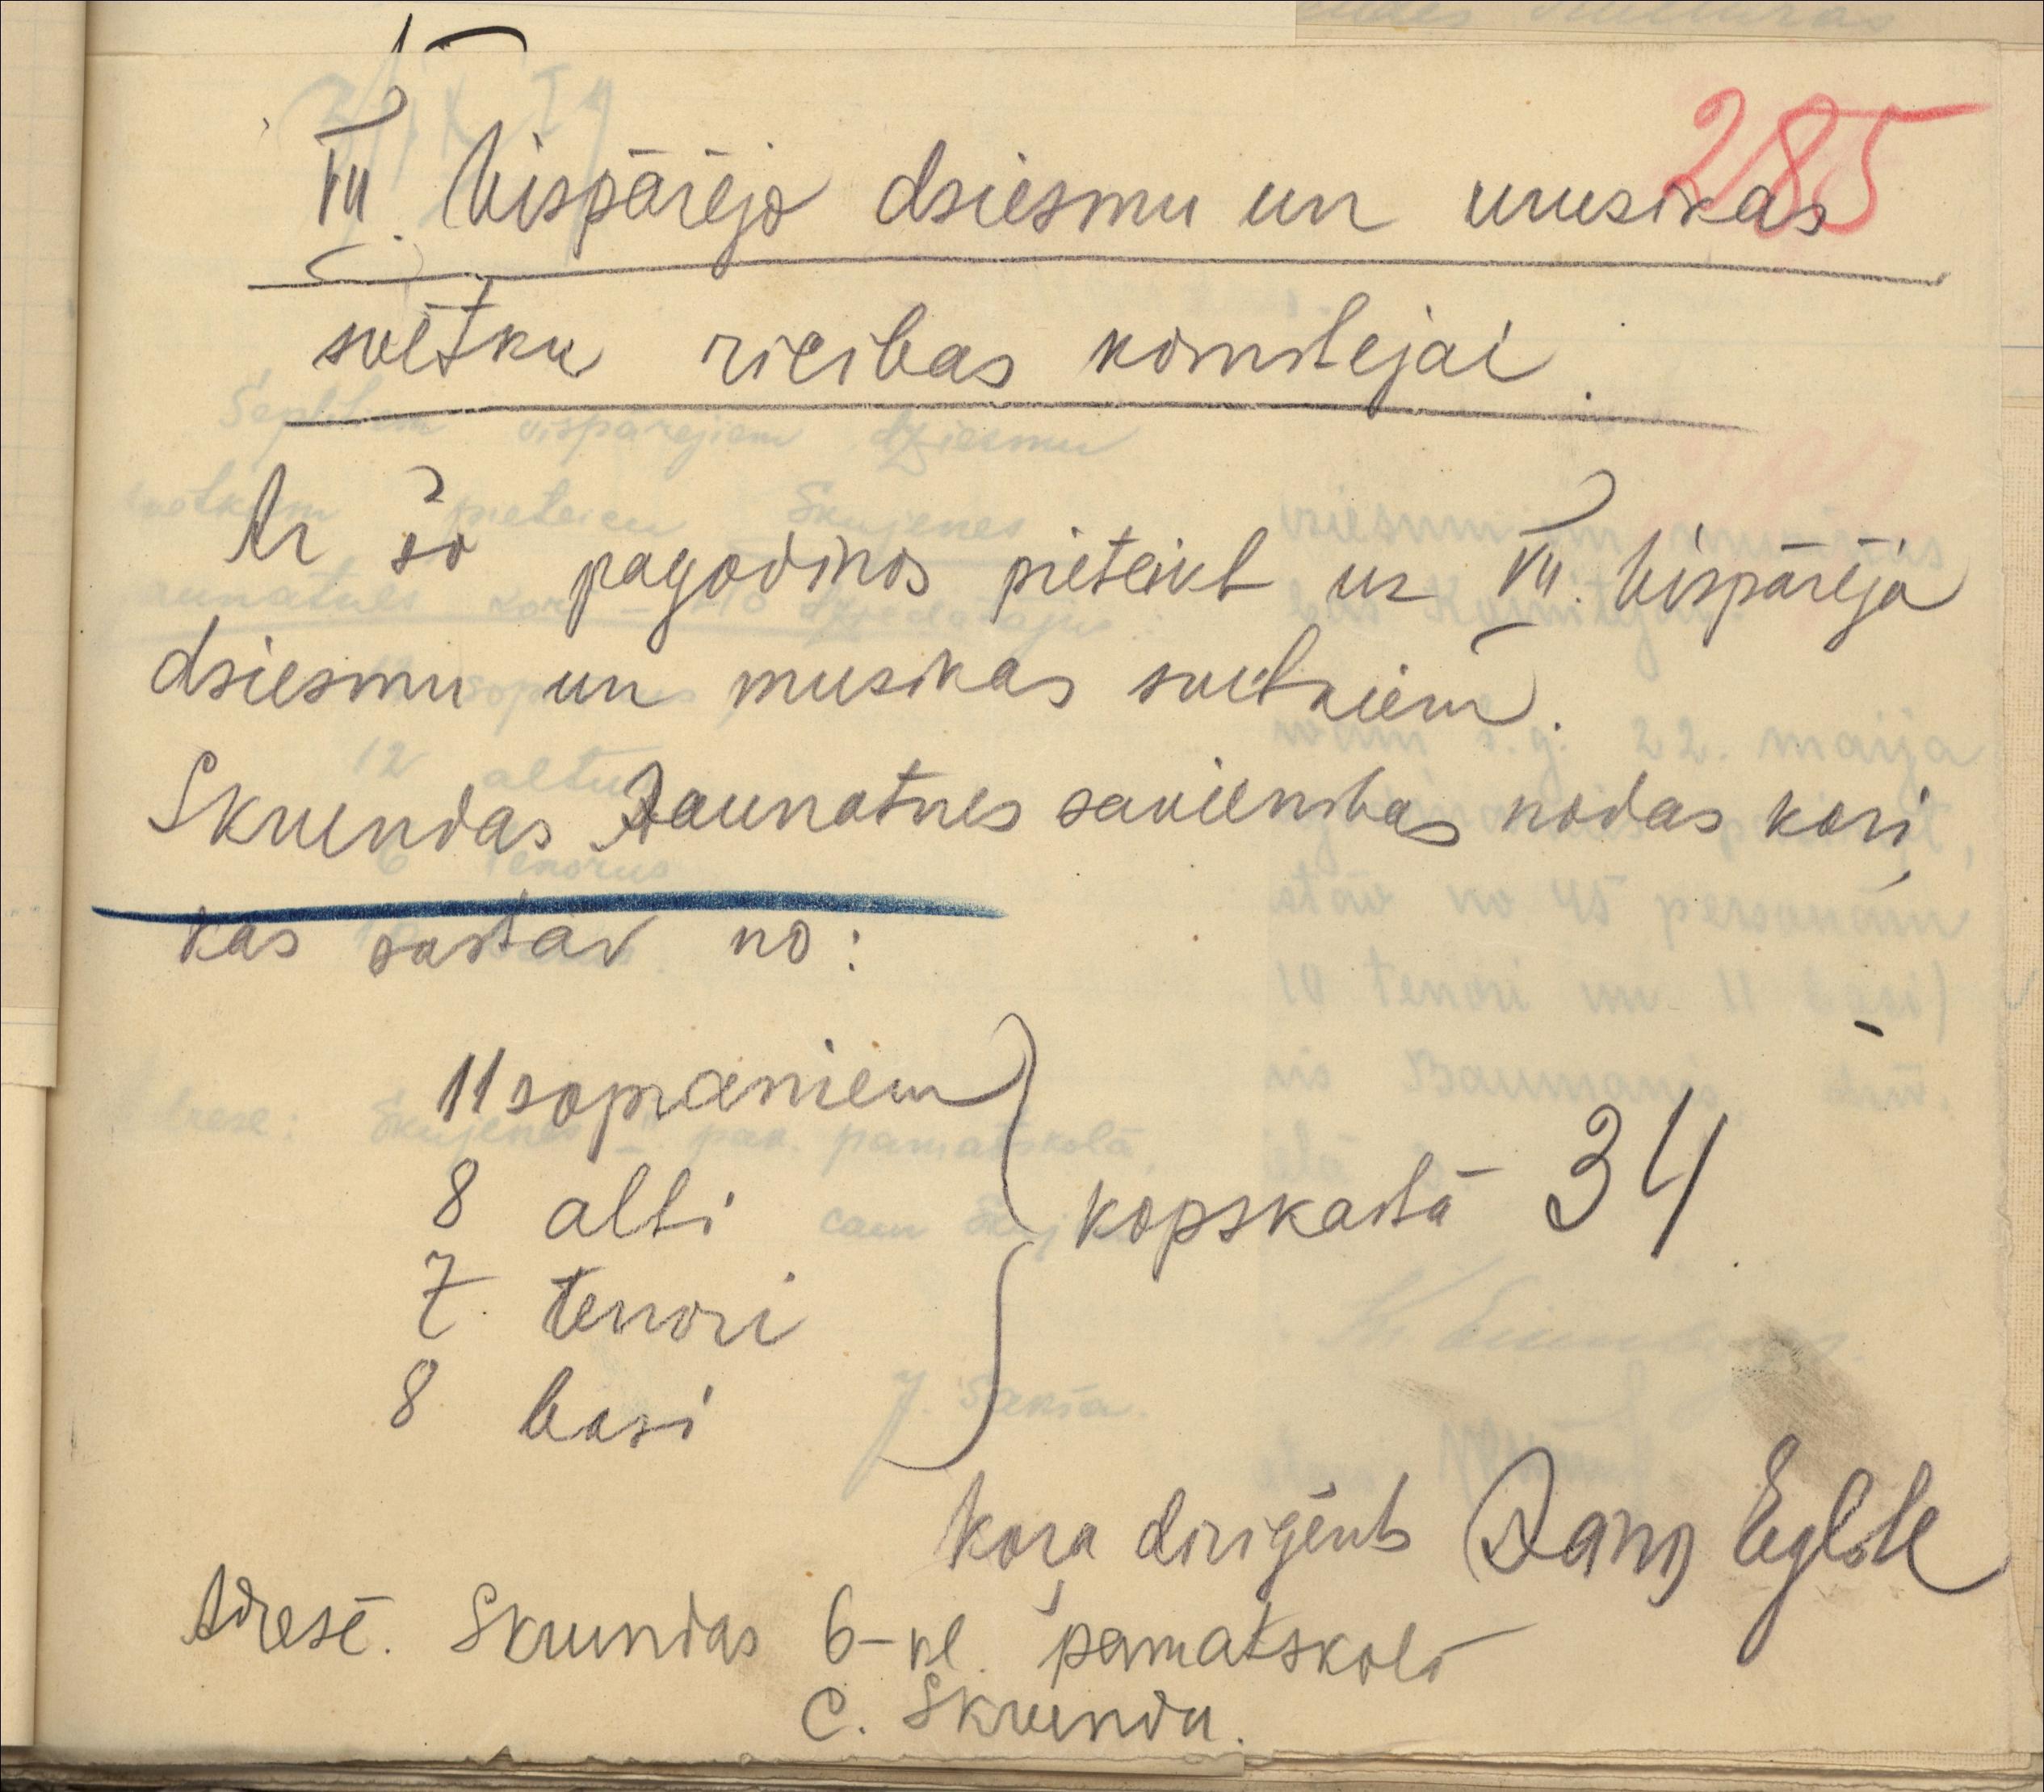 285
VII. Vispārējo dsiesmu un musikas
svētku rīcibas komitejai.
Ar šo pagodinos pieteikt us VII. Vispārēja
dsiesmu un musikas svētkiem.
Skrundas Jaunatnes savienibas nodas kori,
kas sastāv no:
11 sopraniem
8 alti
kopskaitā 34
7. tenori
8 basi
Koŗa diriģents Jānis Eglīte
Adresē. Skrundas 6-kl. pamatskolā
C. Skrundu.